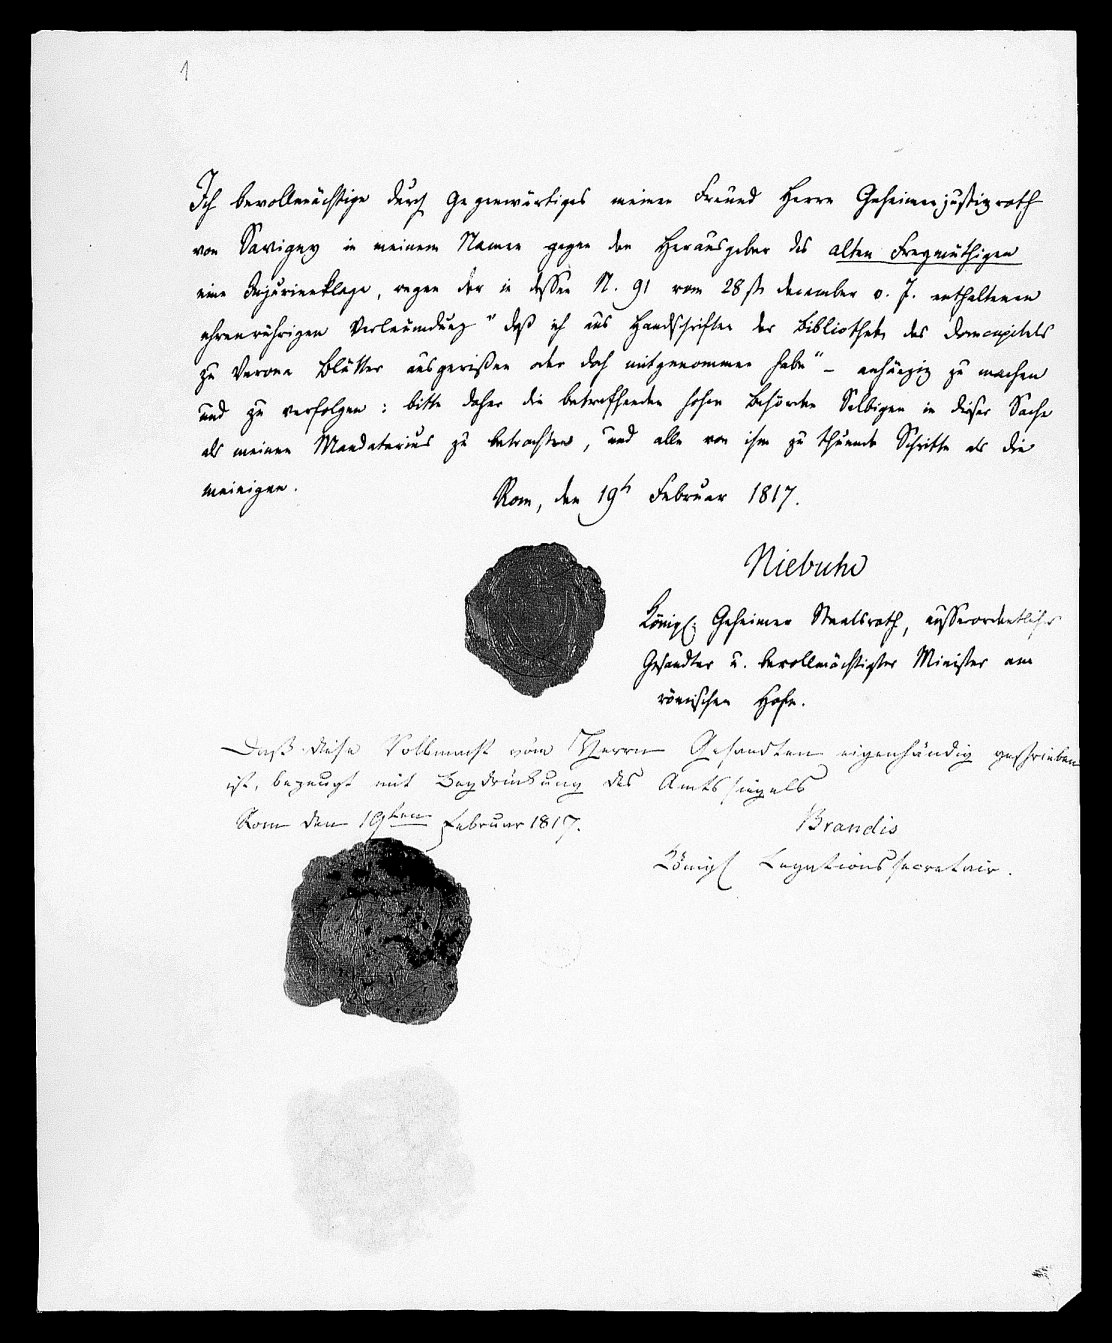 1
Ich bevollmächtige durch Gegenwärtiges meinen Freund Herrn Geheimenjustizrath
von Savigny in meinem Namen gegen den Herausgeber des alten Freymüthigen
eine Injurienklage, wegen der in dessen N. 91 vom 28st december v. J. enthaltenen
ehrenrührigen Verläumdung "daß ich aus Handschriften der Bibliothek des Domcapitels
zu Verona Blätter ausgerißen oder doch mitgenommen habe" – anhängig zu machen
und zu verfolgen: bitte daher die betreffenden hohen Behörden Selbigen in dieser Sache
als meinen Mandatarius zu betrachten, und alle von ihm zu thuende Schritte als die
meinigen.
Rom, den 19t Februar 1817.
Niebuhr
Königl. Geheimer Staatsrath, ausserordentlicher
Gesandter u. bevollmächtigter Minister am
römischen Hofe.
Daß diese Vollmacht vom Herrn Gesandten eigenhändig geschrieben
ist, bezeugt mit Beydrückung des Amtssiegels
Rom den 19ten Februar 1817.
Brandis
Königl Legationssecretair.